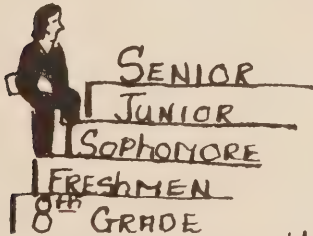 SENIOR
JUNIOR
SOPHOMORE
FRESHMEN
8TH GRADE